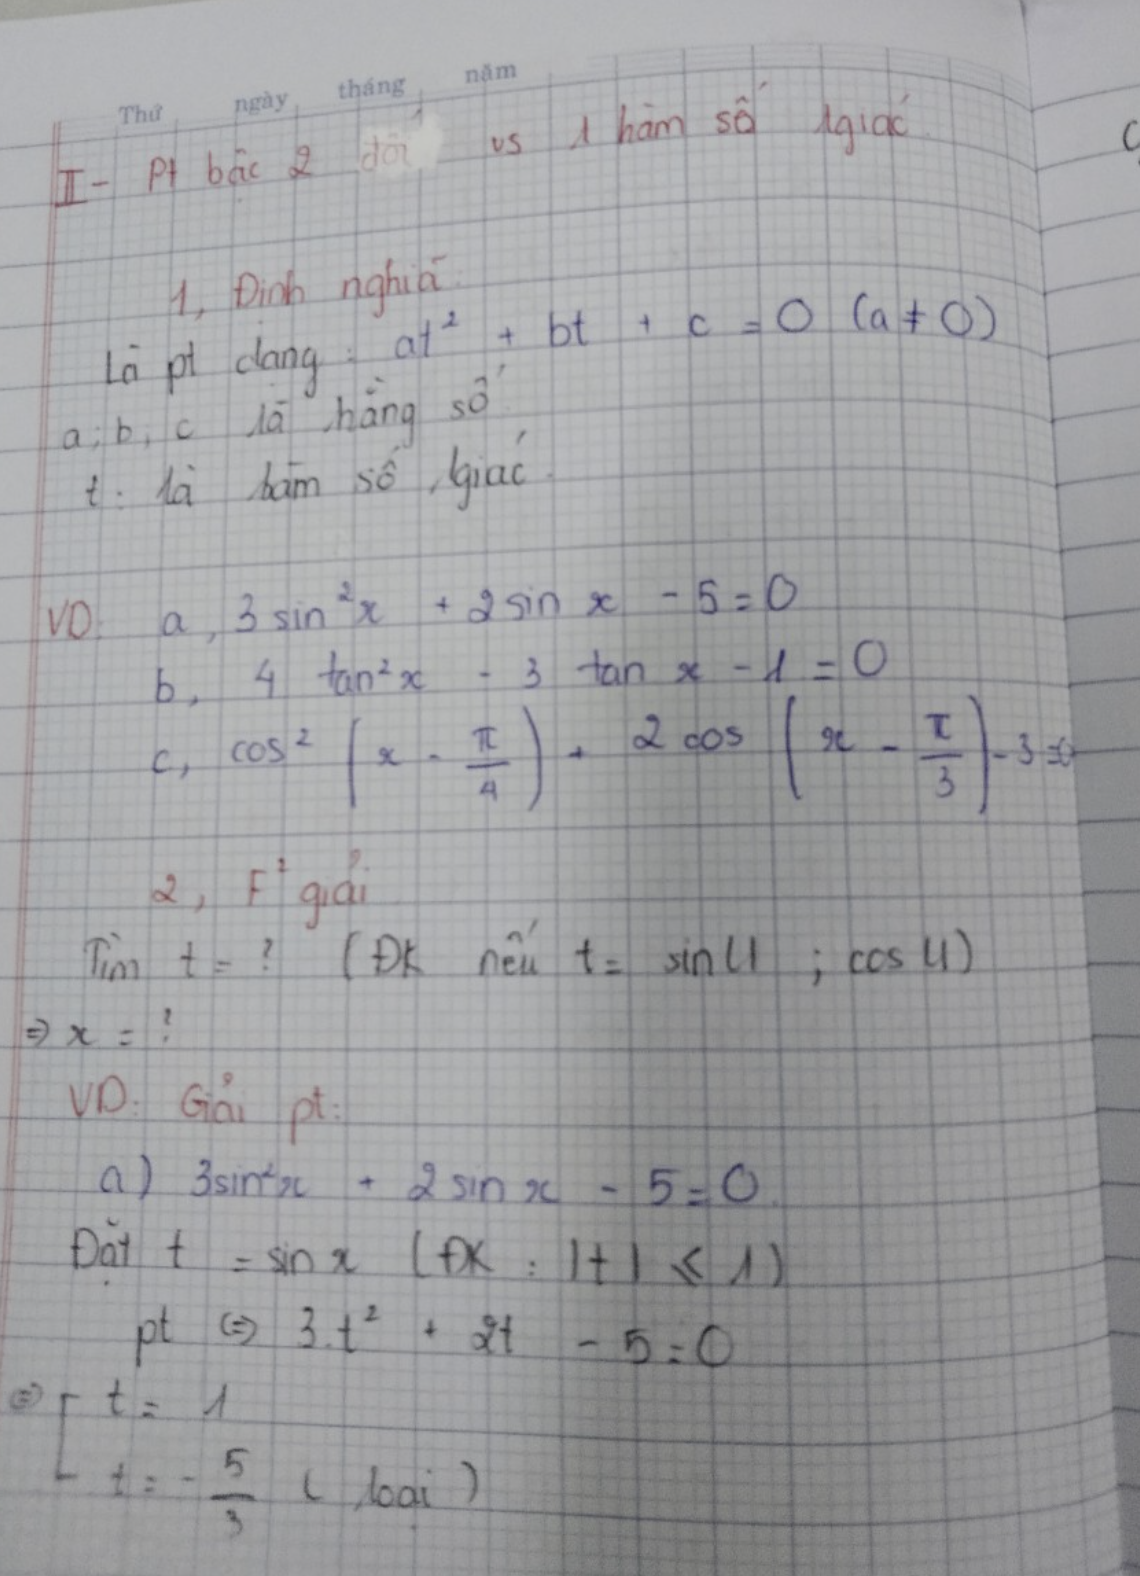 Thứ ngày tháng năm
II- Pt bậc 2 đối vs 1 hàm số lgiác.
1, Định nghĩa.
Là pt dạng: at² + bt + c = 0 (a ≠ 0)
a; b, c là hằng số
t: là hàm số lgiác.
VD: a, 3 sin²x + 2 sin x - 5 = 0
b, 4 tan²x - 3 tan x - 1 = 0
c, cos² (x - π/4) + 2 cos (x - π/3) - 3 = 0
2, F² giải
Tìm t = ? (ĐK nếu t = sin U ; cos U)
⇒ x = ?
VD: Giải pt:
a) 3sin²x + 2 sin x - 5 = 0.
Đặt t = sin x (ĐK : |t| ≤ 1)
pt ⇔ 3.t² + 2t - 5 = 0
⇔ [ t = 1
t = - 5/3 ( loại )